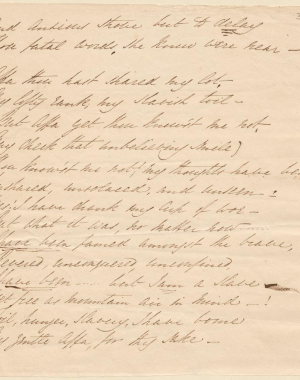 And Anxious Strove but to delay
fatal words, She knew were near —
Affa thou hast Shared my lot,
My lofty rank, my Slavish toil —
But Affa yet thou knowst me not,
(Nay check that unbelieving Smile)
Thou knowst me not! my thoughts have been
unsolaced, and unseen — !
I have drank my Cup of woe —
that it was, no matter how
have been famed amongst the brave,
unconquered, unconfined
have been — but I am a Slave —
Yet free as mountain air in mind — !
Toil, hunger, Slavery, I have borne
My gentle Affa, for thy Sake —